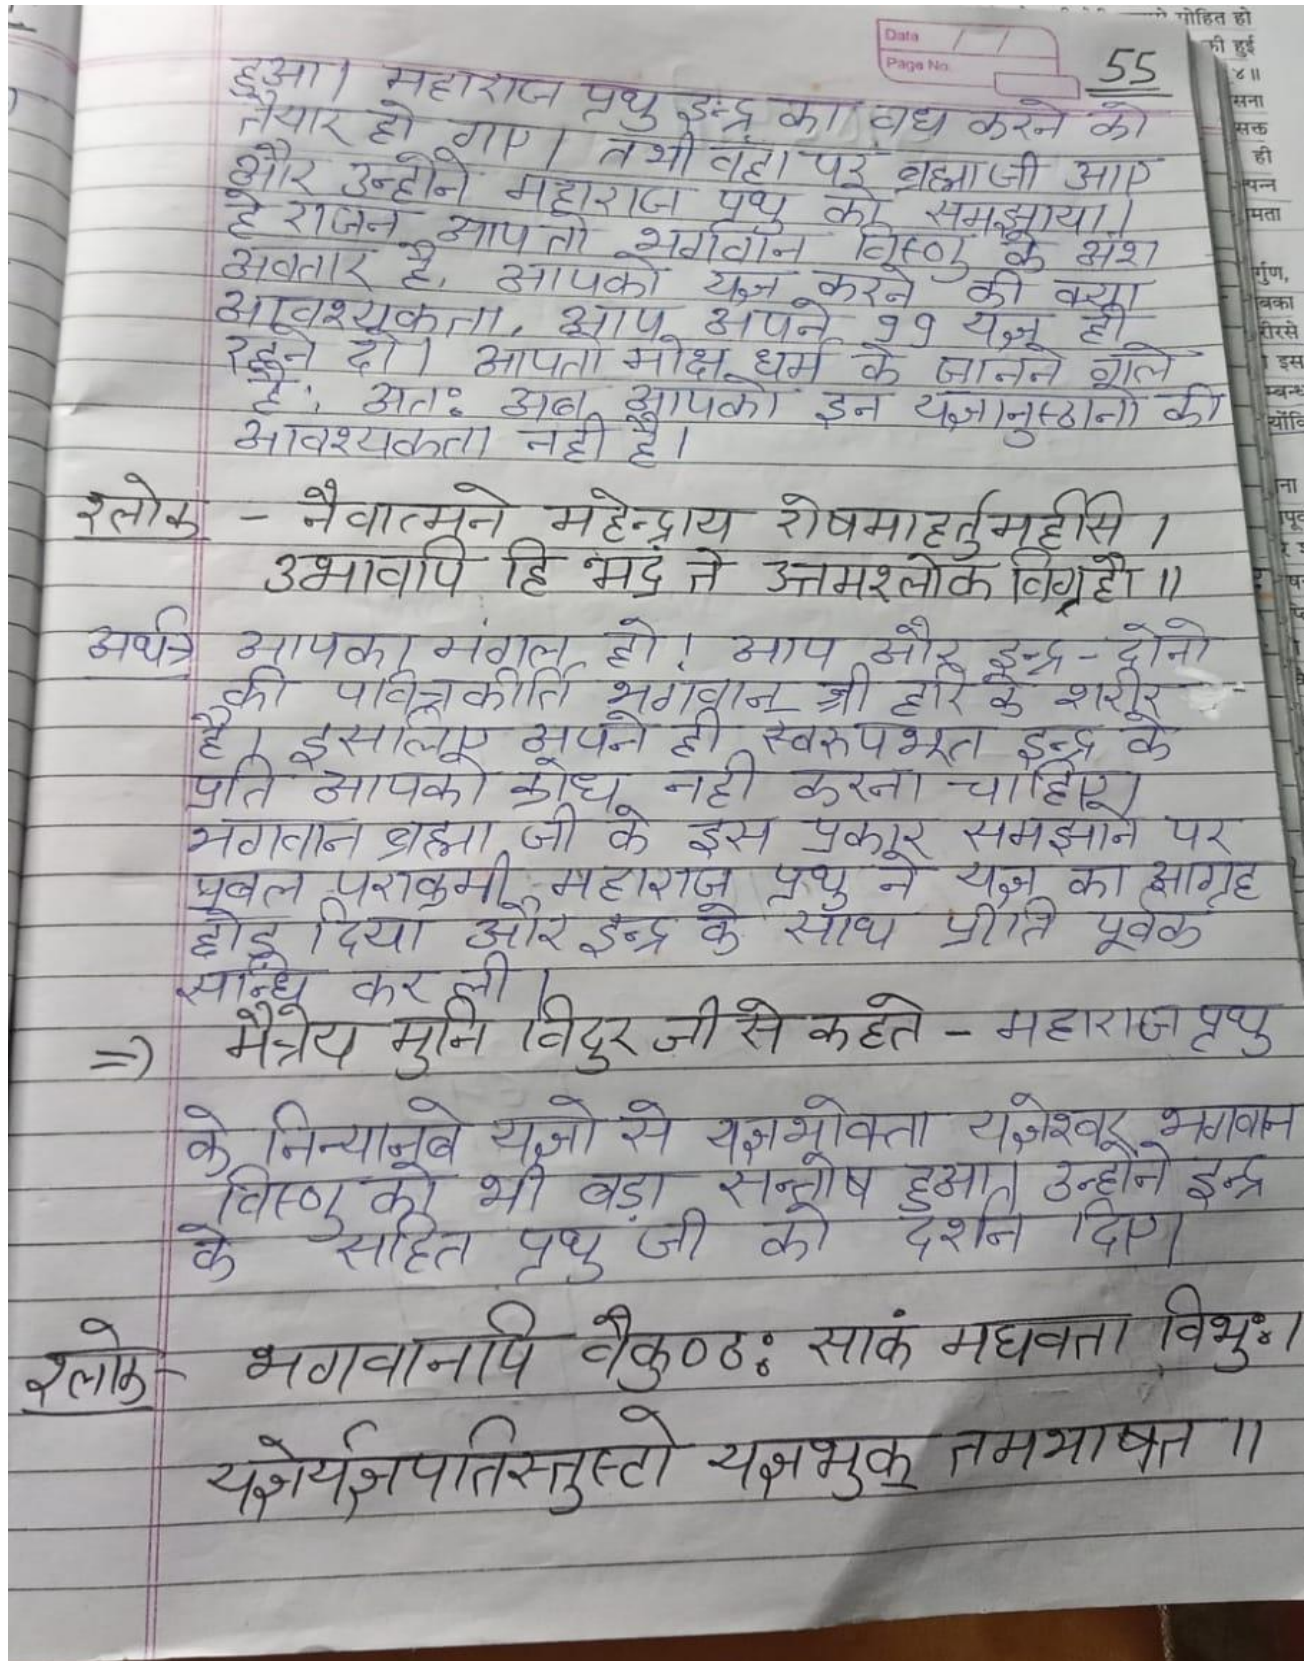 Data / /
Page No.
55
हुआ। महाराज प्रथु इन्द्र का वध करने को
तैयार हो गए। तभी वहा पर ब्रह्माजी आए
और उन्होने महाराज प्रथु को समझाया।
हे राजन आपतो भगवान विष्णु के अंश
अवतार है, आपको यज्ञ करने की क्या
आवश्यकता, आप अपने ९९ यज्ञ ही
रहने दो। आपतो मोक्ष धर्म के जानने वाले
है, अतः अब आपको इन यज्ञानुस्ठानो की
आवश्यकता नही है।
श्लोक - नैवात्मने महेन्द्राय रोषमाहर्तुमर्हसि ।
उभावपि हि भद्रं ते उत्तमश्लोक विग्रहौ ॥
अर्थ आपका मंगल हो! आप और इन्द्र - दोनो
की पवित्रकीर्ति भगवान श्री हरि के शरीर
है। इसलिए अपने ही स्वरुपभूत इन्द्र के
प्रति आपको क्रोध नही करना चाहिए।
भगवान ब्रह्मा जी के इस प्रकार समझाने पर
प्रबल पराक्रमी महाराज प्रथु ने यज्ञ का आग्रह
छोड़ दिया और इन्द्र के साथ प्रीति पूर्वक
सन्धि कर ली।
=> मैत्रेय मुनि विदुर जी से कहते - महाराज प्रथु
के निन्यानबे यज्ञो से यज्ञभोक्ता यज्ञेश्वर भगवान
विष्णु को भी बड़ा सन्तोष हुआ। उन्होने इन्द्र
के सहित प्रथु जी को दर्शन दिए।
श्लोक - भगवानपि वैकुण्ठः साकं मघवता विभुः।
यज्ञैर्यज्ञपतिस्तुस्टो यज्ञभुक् तमभाषत ॥
मोहित हो
की हुई
४॥
सक्त
ही
इस